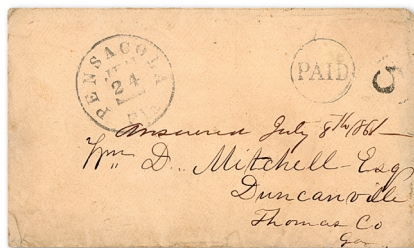 PENSACOLA
24
Fla
PAID
5
answered July 8th 1861
Wm D. Mitchell Esq
Duncanville
Thomas Co
Geo